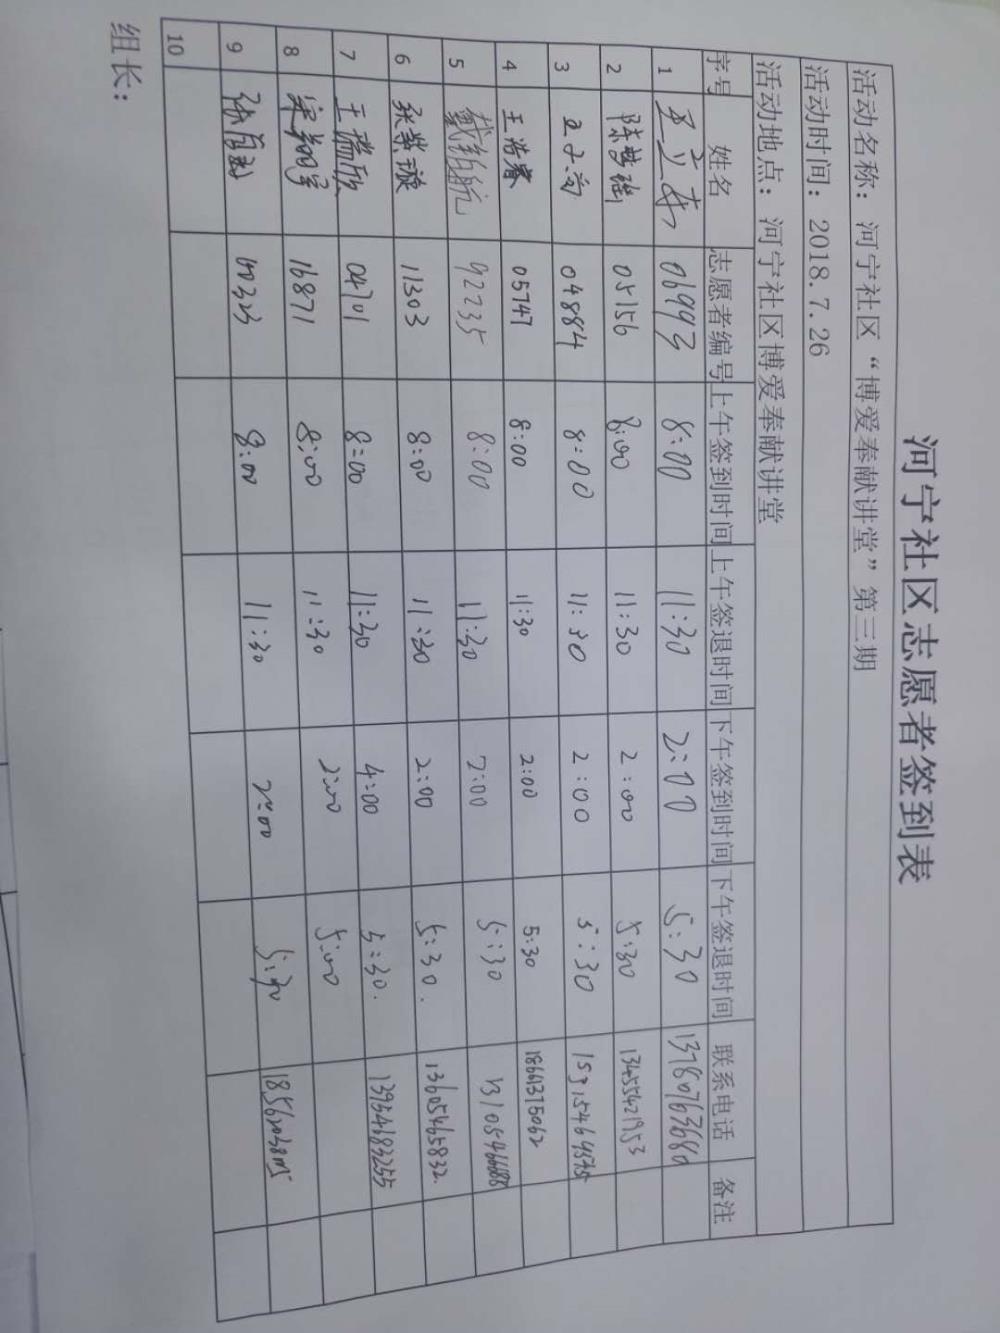 河宁社区志愿者签到表
活动名称：河宁社区“博爱奉献讲堂”第三期
活动时间：2018.7.26
活动地点：河宁社区博爱奉献讲堂
序号 姓名 志愿者编号 上午签到时间 上午签退时间 下午签到时间 下午签退时间 联系电话 备注
1 06993 8:00 11:30 2:00 5:30 13780763680
2 陈梦瑶 05156 8:00 11:30 2:00 5:30 13455421953
3 04884 8:00 11:30 2:00 5:30
4 王浩睿 05747 8:00 11:30 2:00 5:30 18661375062
5 戴铂航 92235 8:00 11:30 2:00 5:30
6 张紫璇 11303 8:00 11:30 2:00 5:30. 13605465832.
7 王瑞欣 04701 8:00 11:30 4:00 5:30. 13954683255
8 16871 8:00 11:30 2:00 5:00
9 8:00 11:30 2:00 5:30
10
组长：